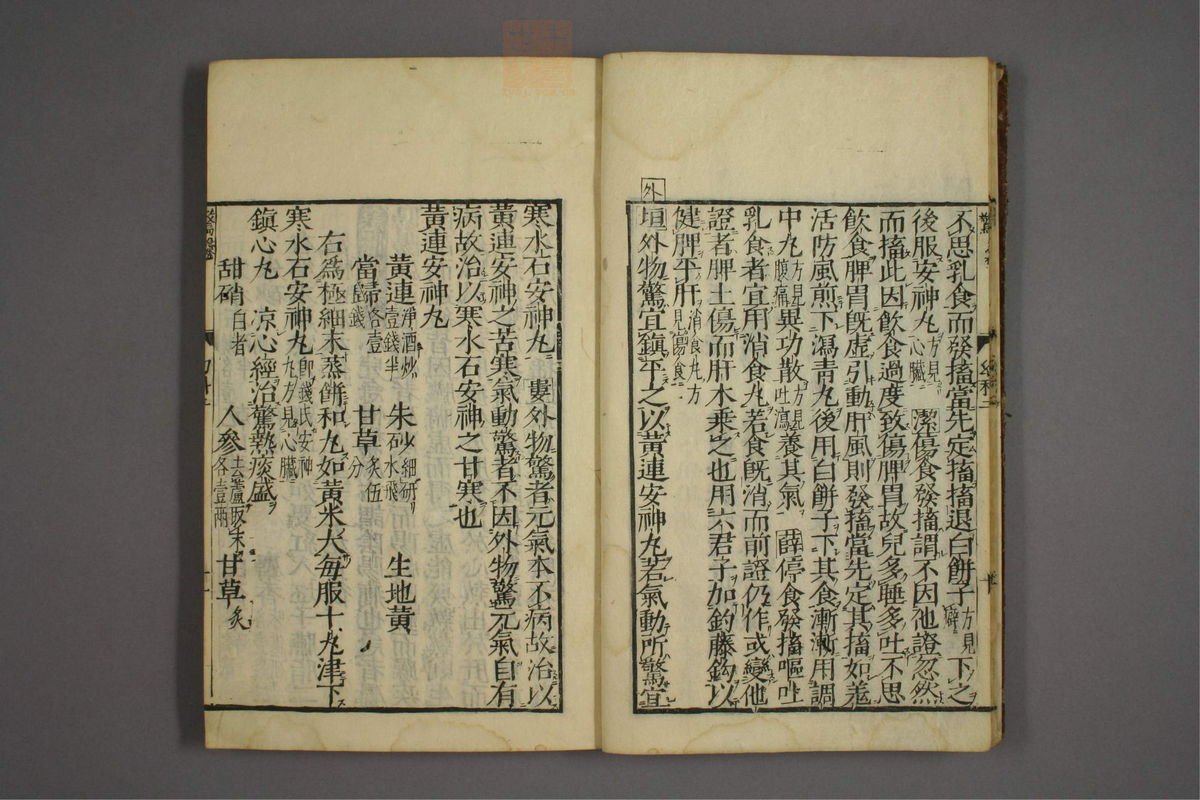 不思乳食而發搐當先定搐搐退白餅子方見癖下之
後服安神丸方見心臟 潔傷食發搐謂不因他證忽然
而搐此因飲食過度致傷脾胃故兒多睡多吐不思
飲食脾胃旣虛引動肝風則發搐當先定其搐如羗
活防風煎下瀉青丸後用白餅子下其食漸漸用調
中丸方見腹痛異功散方見吐瀉養其氣 薛停食發搐嘔吐
乳食者宜用消食丸若食旣消而前證仍作或變他
證者脾土傷而肝木乗之也用六君子加釣藤鈎以
健脾平肝消食丸方見傷食
外
垣外物驚宜鎮平之以黄連安神丸若氣動所驚宜
寒水石安神丸 婁外物驚者元氣本不病故治以
黄連安神之苦寒氣動驚者不因外物驚元氣自有
病故治以寒水石安神之甘寒也
黄連安神丸
黄連淨酒炒壹錢半 朱砂細研水飛 生地黄
當歸各壹錢 甘草炙伍分
右爲極細末蒸餅和丸如黄米大每服十丸津下
寒水石安神丸即錢氏安神丸方見心臟
鎮心丸 凉心經治驚熱痰盛
甜硝白者 人參去蘆取末各壹兩 甘草炙